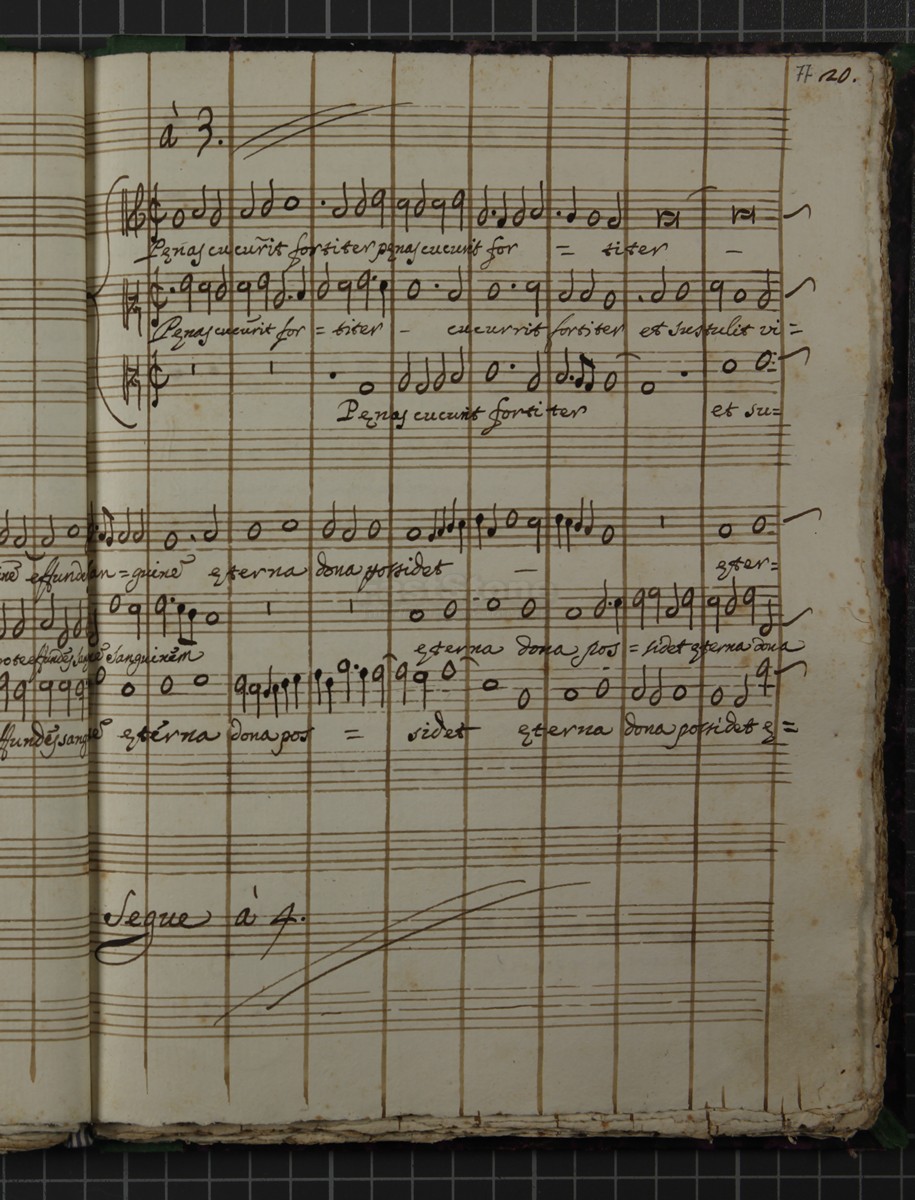 77 20.
à 3.
Penas cucũrit fortiter penas cucurit for = titer -
Penas cucũrit for = titer - cucurrit fortiter et sustulit vi =
Penas cucurit fortiter et su=
effunde͂ san = guine͂ ęterna dona possidet - ęter=
sanguinem ęterna dona pos = sidet ęterna dona
ęterna dona pos = sidet ęterna dona possidet ę=
Segue à 4.